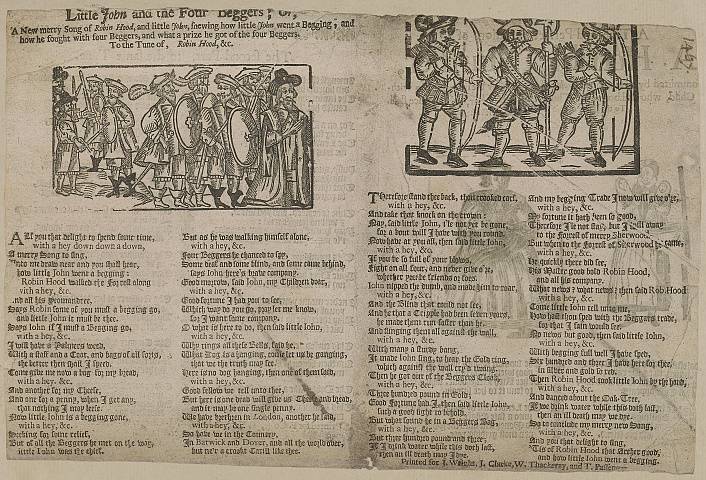 Little John and the Four Beggers; Or,
A New merry Song of Robin Hood, and little John, shewing how little John went a Begging; and
how he fought with four Beggers, and what a prize he got of the four Beggers.
To the Tune of, Robin Hood, &c.
All you that delight to spend some time,
with a hey down down a down,
A merry Song to sing,
Unto me draw near and you shall hear,
how little John went a begging:
Robin Hood walked the Forrest along
with a hey, &c.
and all his yeomandree.
Says Robin some of you must a begging go,
and little John it must be thee.
Says John if I must a Begging go,
with a hey, &c.
I will have a Palmers weed,
With a staff and a Coat, and bags of all sorts,
the better then shall I speed.
Come give me now a bag for my bread,
with a hey, &c.
And another for my Cheese,
And one for a penny, when I get any,
that nothing I may leese.
Now little John is a begging gone,
with a hey, &c.
Seeking for some relief,
But of all the Beggers he met on the way,
little John was the chief.
But as he was walking himself alone,
with a hey, &c.
Four Beggers he chanced to spy,
Some deaf and some blind, and some came behind,
says John here's brave company.
Good morrow, said John, my Children dear,
with a hey, &c.
Good fortune I had you to see,
Which way do you go, pray let me know,
for I want some company.
O what is here to do, then said little John,
with a hey, &c.
Why rings all these Bells, said he,
What Dog is a hanging, come let us be ganging,
that we the truth may see.
Here is no dog hanging, then one of them said,
with a hey, &c.
Good fellow we tell unto thee,
But here is one dead will give us Cheese and bread,
and it may be one single penny.
We have brethren in London, another he said,
with a hey, &c.
So have we in the Country,
In Barwick and Dover, and all the world over,
but ne'r a crookt Carill like thee.
Therefore stand thee back, thou crooked carel,
with a hey, &c.
And take that knock on the crown:
Nay, said little John, i'le not yet be gone,
for a bout will I have with you round.
Now have at you all, then said little John,
with a hey, &c.
If you be so full of your blows,
Fight on all four, and never give o're,
whether you be friends or foes.
John nipped the dumb, and made him to roar,
with a hey, &c.
And the Blind that could not see,
And he that a Cripple had been seven years,
he made them run faster than he.
And flinging them all against the wall,
with a hey, &c.
With many a sturdy bang,
It made John sing, to hear the Gold ring,
which against the wall cry'd twang.
Then he got out of the Beggers Cloak,
with a hey, &c.
Three hundred pound in Gold;
Good Fortune had I, then said little John,
such a good sight to behold.
But what found he in a Beggers Bag,
with a hey, &c.
But three hundred pound and three;
If I drink water while this doth last,
then an ill death may I dye.
And my begging Trade I now will give o're,
with a hey, &c.
My fortune it hath been so good,
Therefore I'le not stay, but I will away
to the Forrest of merry Sherwood.
But when to the Forrest of Sherwood he came,
with a hey, &c.
He quickly there did see,
His Master good bold Robin Hood,
and all his company.
What news? what news? then said Rob. Hood
with a hey, &c.
Come little John tell unto me,
How hast thou sped with the Beggers trade,
for that I fain would see.
No news but good, then said little John,
with a hey, &c.
With begging full well I have sped,
Six hundred and three I have here for thee,
in silver and gold so red.
Then Robin Hood took little John by the hand,
with a hey, &c.
And danced about the Oak-Tree,
If we drink water while this doth last,
then an ill death may we dye.
So to conclude my merry new Song,
with a hey, &c.
And you that delight to sing,
'Tis of Robin Hood that Archer good,
and how little John went a begging.
Printed for J. Wright, J. Clarke, W. Thackeray, and T. Passenger.